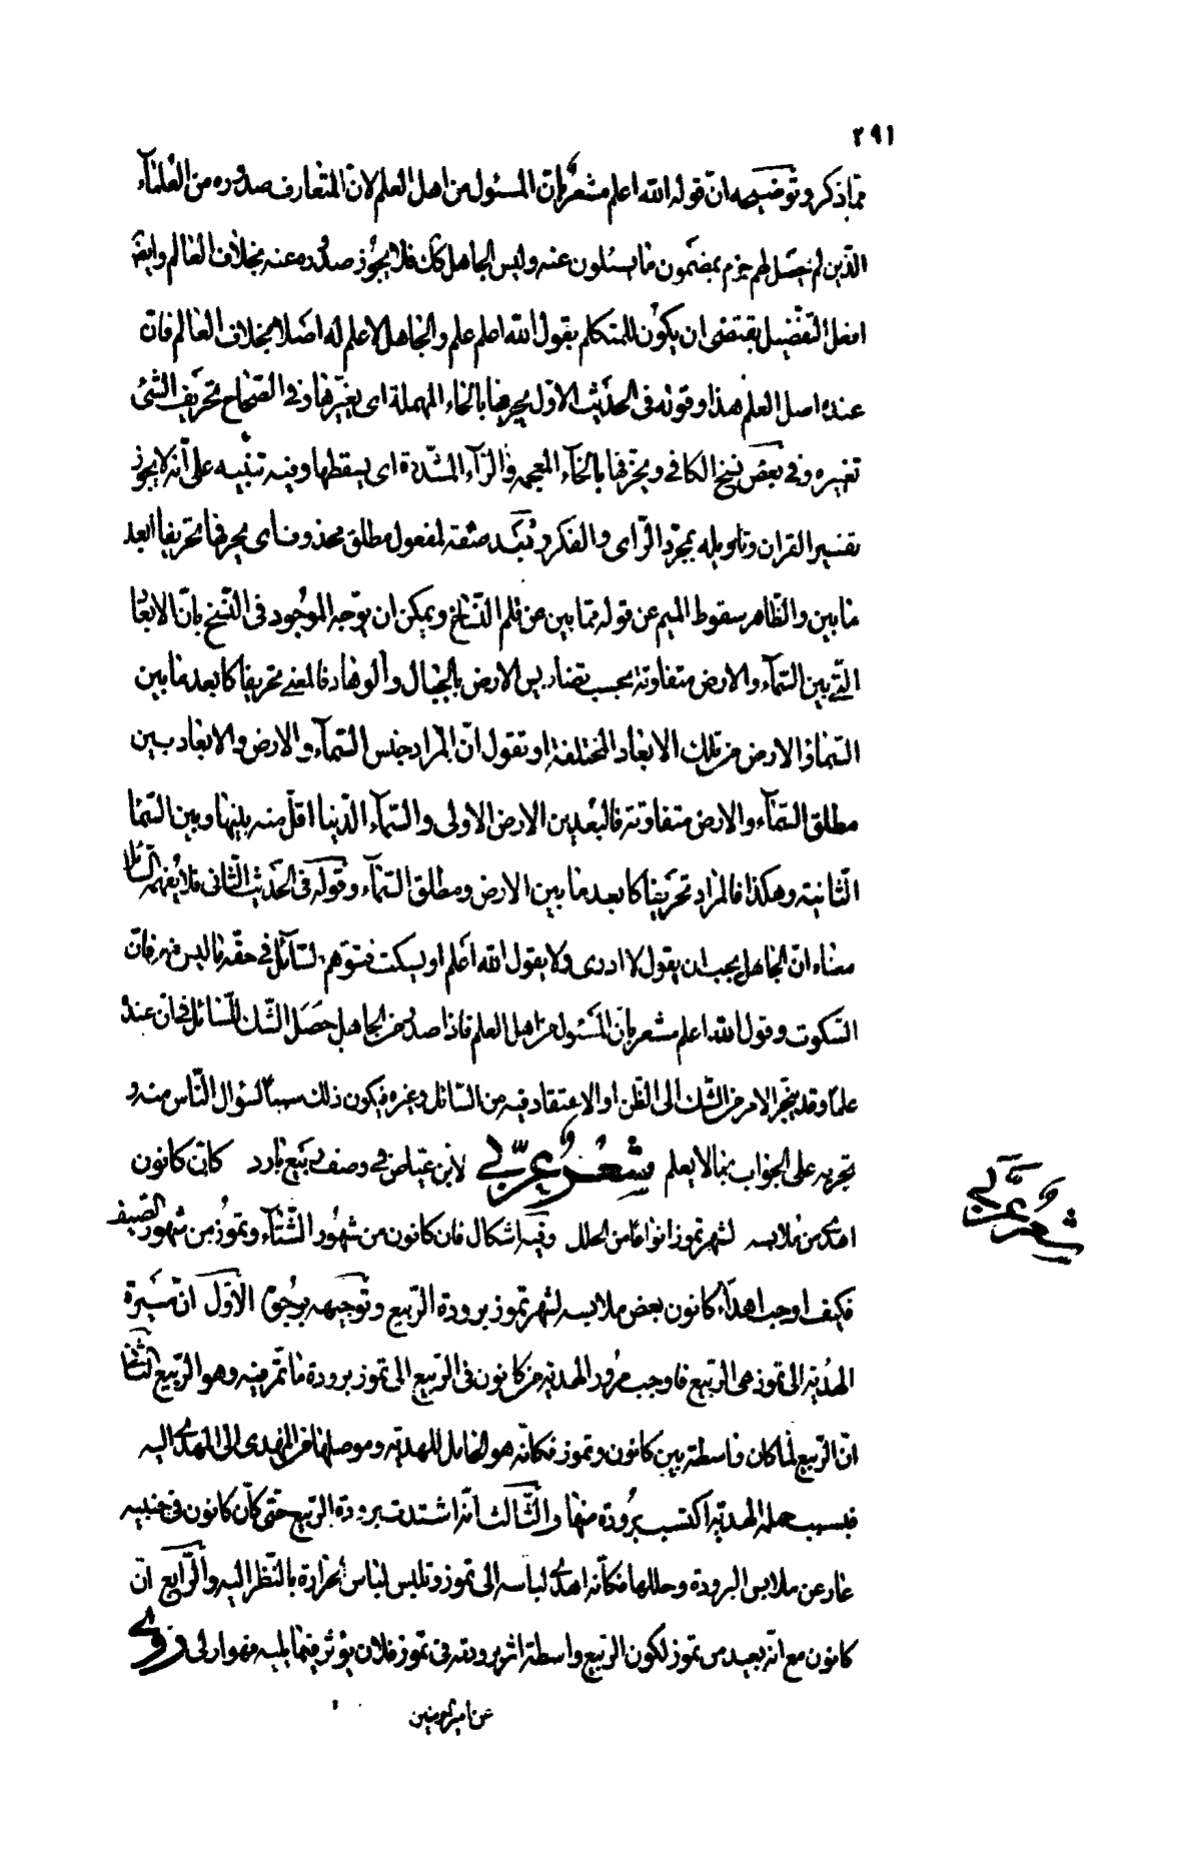 ٢٩١
مما ذكر وتوضيحه ان قوله الله اعلم مشعر بان المسئول من اهل العلم لان المتعارف صدوره من العلمآء
الذين لم يحصل لهم جزم بمضمون ما يسئلون عنه وليس الجاهل كك فلا يجوز صدوره عنه بخلاف العالم وايضا
افعل التفضيل يقتضى ان يكون للمتكلم بقول الله اعلم علم والجاهل لا علم له اصلا بخلاف العالم فان
عنده اصل العلم هذا وقوله فى الحديث الاول يحرفها بالحاء المهملة اى يغيرها وفى الصحاح تحريف الشئ
تغييره وفى بعض نسخ الكافى ويخرفها بالخآء المعجمة والرآء المشددة اى يسقطها وفيه تنبيه على انه لا يجوز
تفسير القران وتاويله بمجرد الراى والفكر و صفة لمفعول مطلق محذوف اى يحرفها تحريفا ابعد
ما بين والظاهر سقوط الميم عن قوله مما بين من قلم النساخ ويمكن ان يوجه الموجود فى النسخ بان الابعاد
التى بين السمآء والارض متفاوتة بحسب تضاريس الارض بالجبال والوهاد فالمعنى تحريفا كابعد ما بين
السمآء والارض من تلك الابعاد المختلفة او تقول ان المراد جنس السمآء والارض والابعاد بين
مطلق السمآء والارض متفاوتة فالبعد بين الارض الاولى والسمآء الدنيا اقل منه بينها وبين السمآء
الثانية وهكذا فالمراد تحريفا كابعد ما بين الارض ومطلق السمآء وقوله فى الحديث الثانى فلا يفهمه السائل
معناه ان الجاهل يجب ان يقول لا ادرى ولا يقول الله اعلم او يسكت فيتوهم السآئل فى حقه ما ليس فيه فان
السكوت وقول الله اعلم مشعر بان المسئول من اهل العلم فاذا صدر من الجاهل حصل الشك للسائل فى ان عنده
علما وقد ينجر الامر من الشك الى الظن او الاعتقاد فيه من السائل وغيره فيكون ذلك سببا لسؤال الناس منه و
تجريه على الجواب بما لا يعلم شعر عربى لابن عياض فى وصف ربيع بارد كان كانون
اهدى من ملابسه لشهر تموز انواعا من الحلل وفيه اشكال فان كانون من شهور الشتآء وتموز من شهور الصيف
فكيف اوجب اهداء كانون بعض ملابسه لشهر تموز برودة الربيع وتوجيهه بوجوه الاول ان مسيرة
الهدية الى تموز هى الربيع فاوجب مرور الهدية من كانون فى الربيع الى تموز برودة ما تمر فيه وهو الربيع الثانى
ان الربيع لما كان واسطة بين كانون وتموز فكانه هو الحامل للهدية وموصلها من المهدى الى المهدى اليه
فبسبب حمله الهدية اكتسب برودة منها والثالث انه اشتدت برودة الربيع حتى كان كانون فى جنبيه
عار عن ملابس البرودة وحللها فكانه اهدى لباسه الى تموز وتلبس لباس الحرارة بالنظر اليه والرابع ان
كانون مع انه بعيد من تموز لكون الربيع واسطة اثر برودته فى تموز فلان يؤثر فيما يليه فهو اولى روى
عن امير المؤمنين
شعر عربى